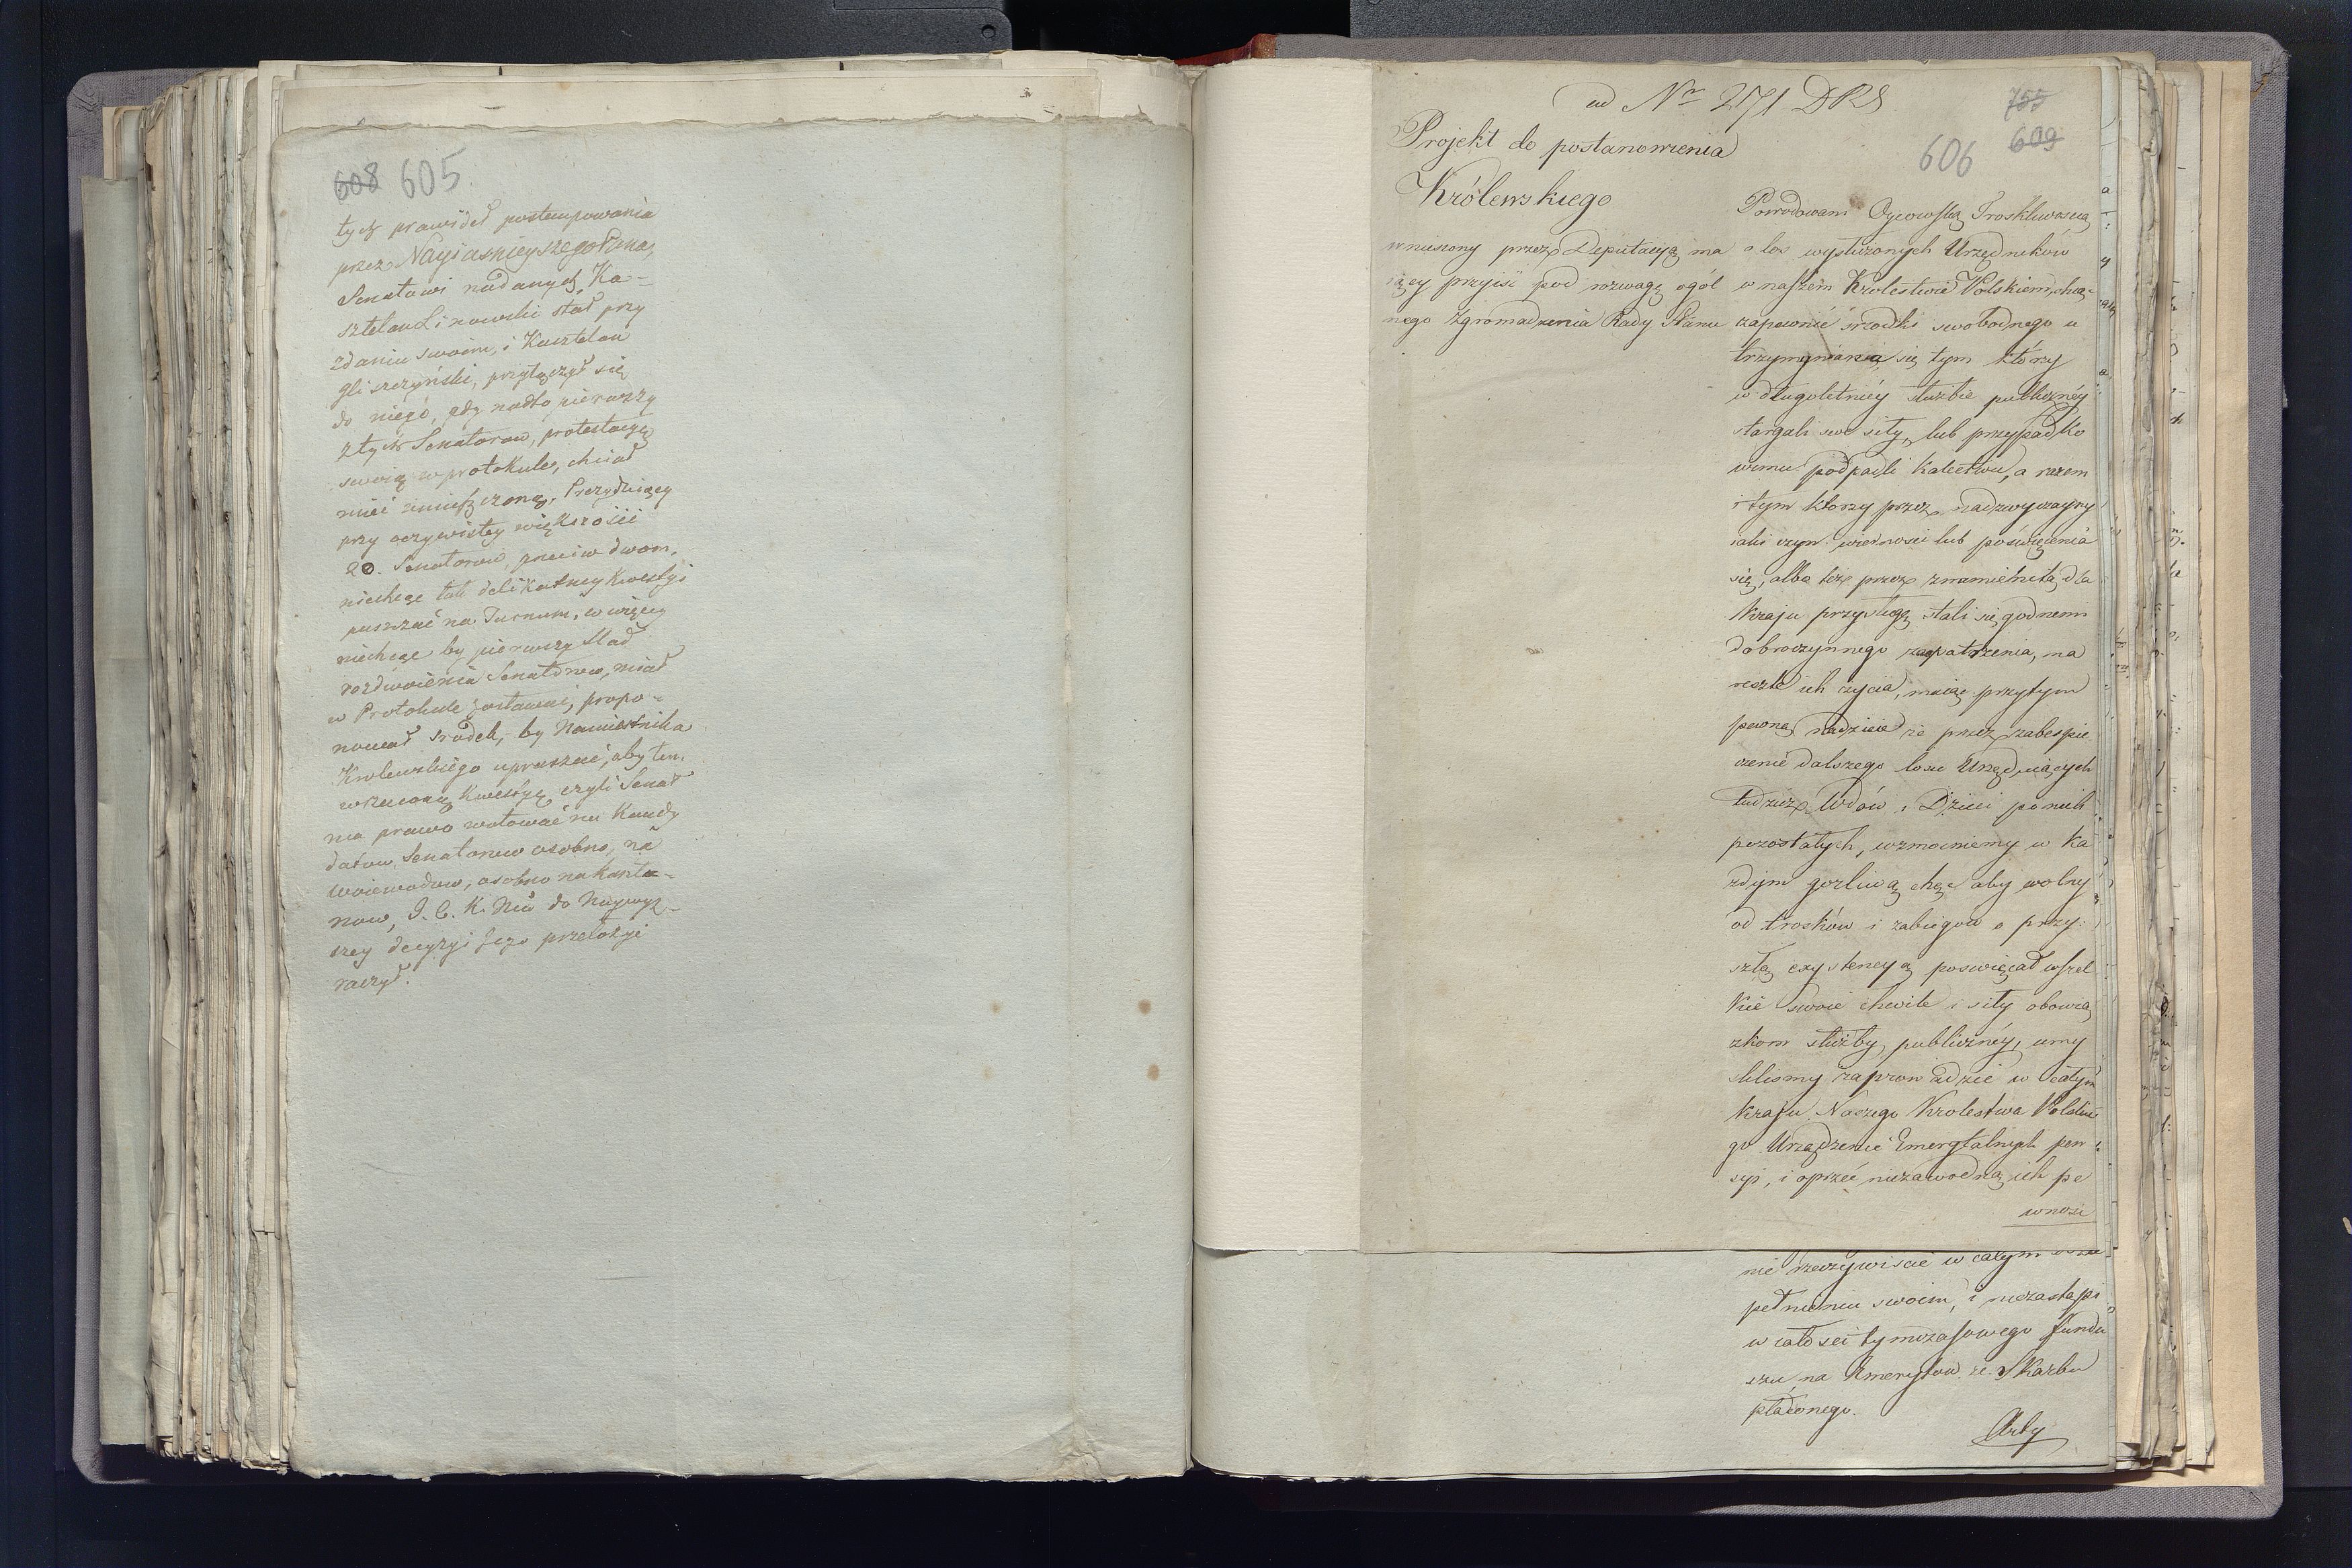 608 605
tych prawideł postempowania
przez Nayiasnieyszego Pana,
Senatowi nadanych, Ka-
sztelan Linowski stał przy
zdaniu swoim, i Kasztelan
Gliszczyński, przyłączył się
do niego, gdy nadto pierwszy
z tych Senatorow, protestacyę
swoią w protokule, chciał
mieć umieszczoną. Prezyduiący
przy oczywistey większości
20. Senatorow, przeciw dwom,
niechcąc tak delikatney kwestyi
puszczać na Turnum, a więcey
niechcąc by pierwszy ślad
rozdwoienia Senatorow, miał
w Protokule zostawać, propo-
nował srodek, by Namiestnika
Krolewskiego upraszać, aby ten,
wzruconą kwestyę czyli Senat
ma prawo wotować na Kandy
datow Senatorow osobno, na
Woiewodow, osobno na Kaszte-
now, J. C. K. Mci do Naywyż-
szey decyzyi Jego przełożyć
raczył.
ad Nr 2171 DRS
755
609
606
Projekt do postanowienia
Królewskiego
wniesiony przez Deputacyą ma
iący przyiść pod rozwagę ogól
nego Zgromadzenia Rady Stanu
Powodowani Oycowską Troskliwoscią
o los wysłużonych Urzędników
w naszem Krolestwie Polskiem, chcąc
zapewnić srzodki swobodnego u
trzymania się tym którzy
w długoletniéy służbie publicznéy
stargali swe siły, lub przypadko
wemu podpadli kalectwu, a razem
i tym ktorzy przez nadzwyczayny
iaki czyn wiernosci lub poświęcenia
się, albo też przez znamienitą dla
Kraju przysługę stali się godnemi
dobroczynnego zaopatrzenia, na
resztę ich życia, maiąc przytym
pewną nadzieię że przez zabespie
czenie dalszego losu Urzęduiących
tudzież Wdów i Dzieci po nich
pozostałych, wzmocniemy w ka
żdym gorliwą chęć aby wolny
od trosków i zabiegow o przy
szłą exystencyą poswięcał wszel
kie swoie chwile i siły obowią
zkom służby publicznéy, umy
slilismy zaprowadzić w całym
Kraju Naszego Krolestwa Polskie
go Urządzenie Emerytalnych pen
syi, i oprzéć niezawodną ich pe
wnosc
nie rzeczywiscie w całym
pełnieniu swoim, i niezastąpi
w całosci tymczasowego fundu
szu na Emerytow ze Skarbu
płaconego.
Arty